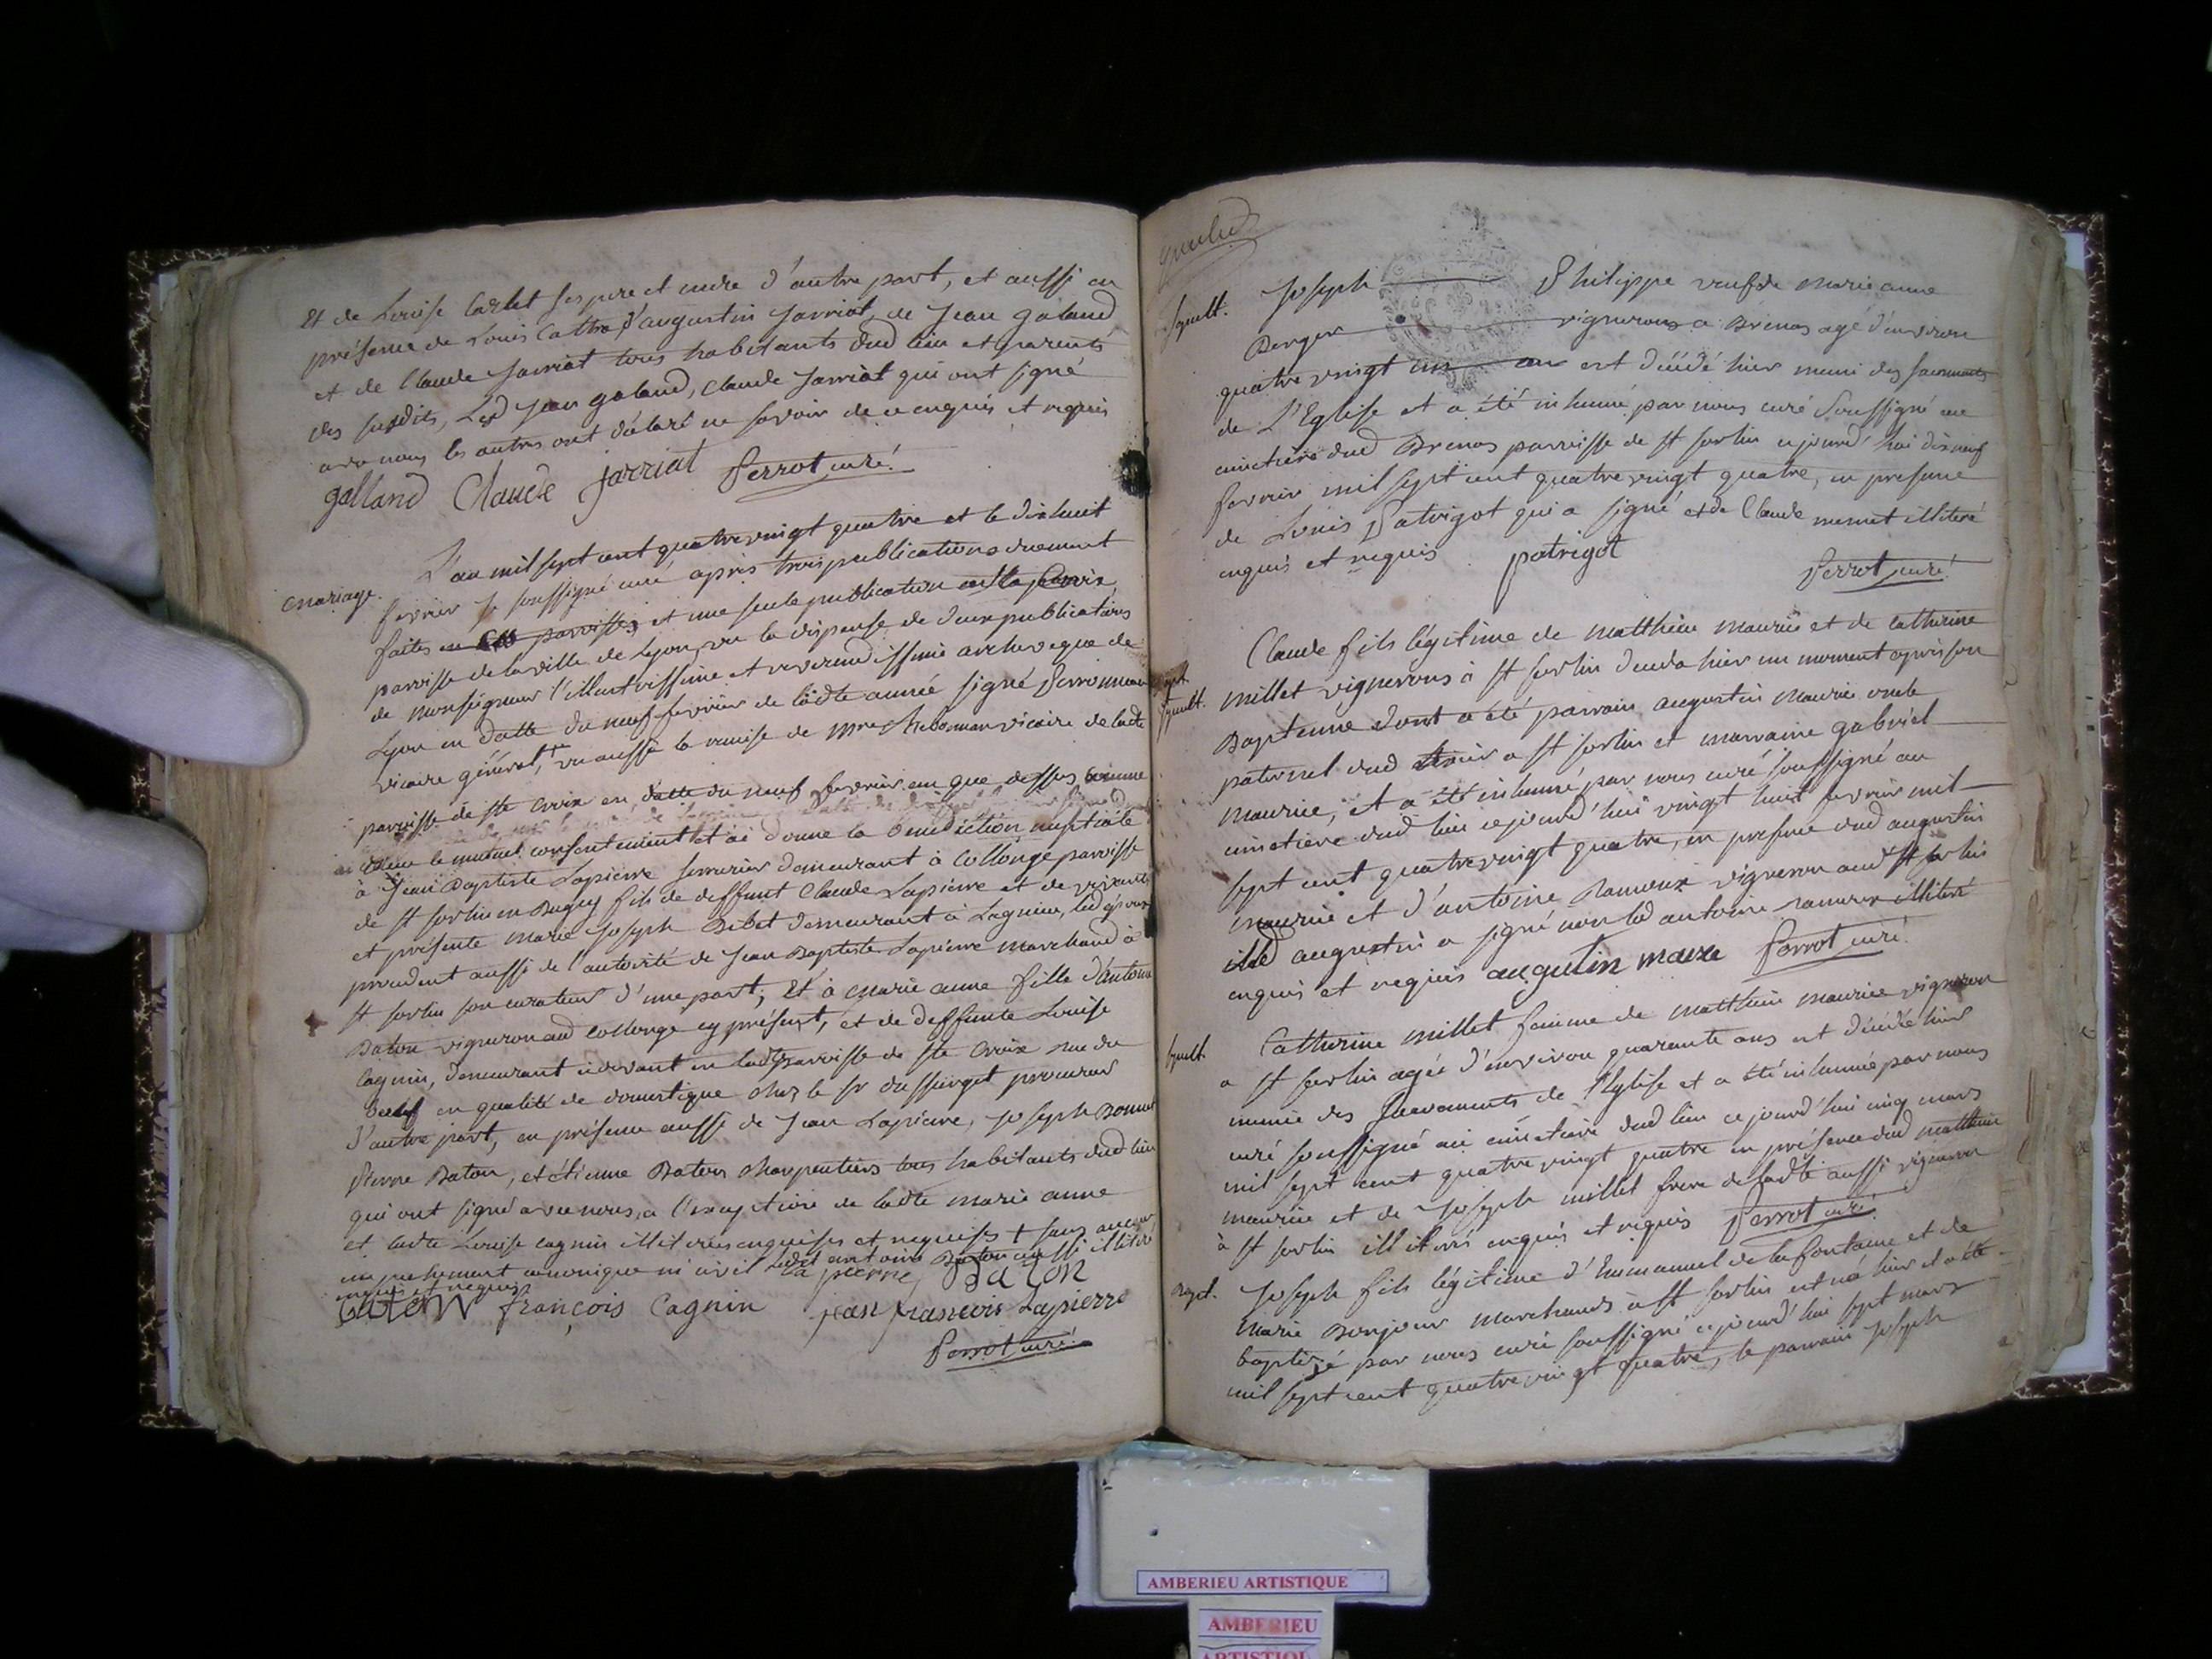 Et de Louise Carlet ses pere et mere d'autre part, et aussi en
présence de Louis Cattra, d'augustin Jarriat, de Jean galand
et de Claude Jarriat tous habitants dud lieu et parents
des susdits, Led Jean galand, Claude Jarriat qui ont signé
avec nous les autres ont déclaré ne savoir de ce enquis et requis
galland Claude jarriat Perrot curé
mariage.
L'an mil sept cent quatre vingt quatre et le dixhuit
fevrier Je soussigné curé après trois publications duement
faites en paroisse, et une seule publication
paroisse de la ville de Lyon, vu la dispense de deux publications
de Monseigneur l'illustrissime et reverendissime archeveque de
Lyon en datte du neuf fevrier de ladte année signé
vicaire général, vu aussi la remise de mre vicaire de ladte
paroisse de ste Croix en datte du neuf fevrier an que dessus
le mutuel consentement et ai donné la bénédiction nuptiale
à Jean Baptiste Lapierre serrurier demeurant à Collonge paroisse
de st sorlin en Bugey fils de deffunt Claude Lapierre et de vivante
et présente marie Joseph Bibet demeurant à Lagnieu, led époux
procedant aussi de l'autorité de Jean Baptiste Lapierre marchand à
st sorlin son curateur d'une part; Et à marie anne fille d'antoine
Baton vigneron aud Collonge cy présent, et de deffunte Louise
Cagnin, demeurant cidevant en ladte paroisse de ste Croix rue du
boeuf en qualité de domestique chez le sr dussurget procureur
d'autre part, en présence aussi de Jean Lapierre, Joseph Bonnet
Pierre Baton, et étienne Baton charpentiers tous habitants dud lieu
qui ont signé avec nous, a l'exception de ladte marie anne
et ladte Louise cagnin illiterées enquises et requises + sans aucun
empechement canonique ni civil Ledit antoine Baton aussi illiteré
enquis et requis
la pierre Baton
baton françois Cagnin jean francois Lapierre
Perrot curé
Sepult.
Joseph Philippe veuf de marie anne
Berger vigneron a Brenas agé d'environ
quatre vingt un an est décédé hier muni des sacrements
de L'Eglise et a été inhumé par nous curé Soussigné au
cimetière dud Brenas parroisse de st sorlin cejourd'hui dixneuf
fevrier mil sept cent quatre vingt quatre, en presence
de Louis Patrigot qui a signé et de Claude illiteré
enquis et requis patrigot Perrot curé
Sepult.
Claude fils légitime de matthieu maurice et de catherine
millet vignerons à st sorlin décédé hier un moment après son
Baptesme dont a été parrain augustin maurice oncle
paternel dud a st sorlin et marraine gabriel
maurice, et a été inhumé par nous curé soussigné au
cimetiere dud lieu cejourd'hui vingt huit fevrier mil
sept cent quatre vingt quatre, en presence dud augustin
maurice et d'antoine Rameux vigneron aud st sorlin
led augustin a signé non led antoine rameux illiteré
enquis et requis augutin maure Perrot curé
Sepult.
Catherine millet femme de matthieu maurice vigneron
a st sorlin agée d'environ quarante ans est décédée hier
munie des sacrements de l'Eglise et a été inhumée par nous
curé soussigné au cimetiere dud lieu cejourd'hui cinq mars
mil sept cent quatre vingt quatre en présence dud matthieu
maurice et de Joseph millet frere de ladte aussi vigneron
à st sorlin illiterés enquis et requis Perrot curé
Bapt.
Joseph fils légitime d'Emmanuel de la fontaine et de
Marie Bonjour marchands à st sorlin est né hier et a été
baptizé par nous curé soussigné cejourd'hui sept mars
mil sept cent quatre vingt quatre, le parrain Joseph
AMBERIEU ARTISTIQUE
AMBERIEU
ARTISTIQUE